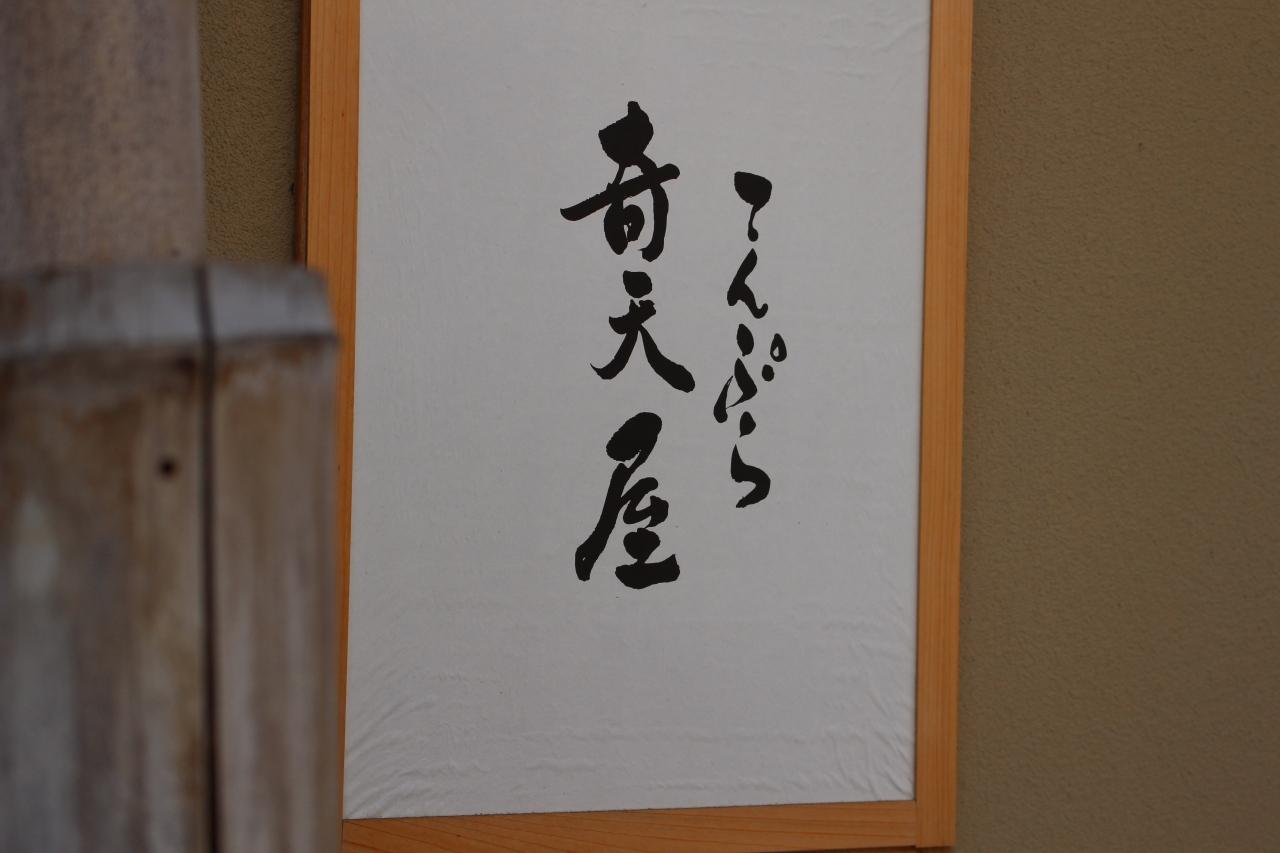 てんぷら
奇天屋